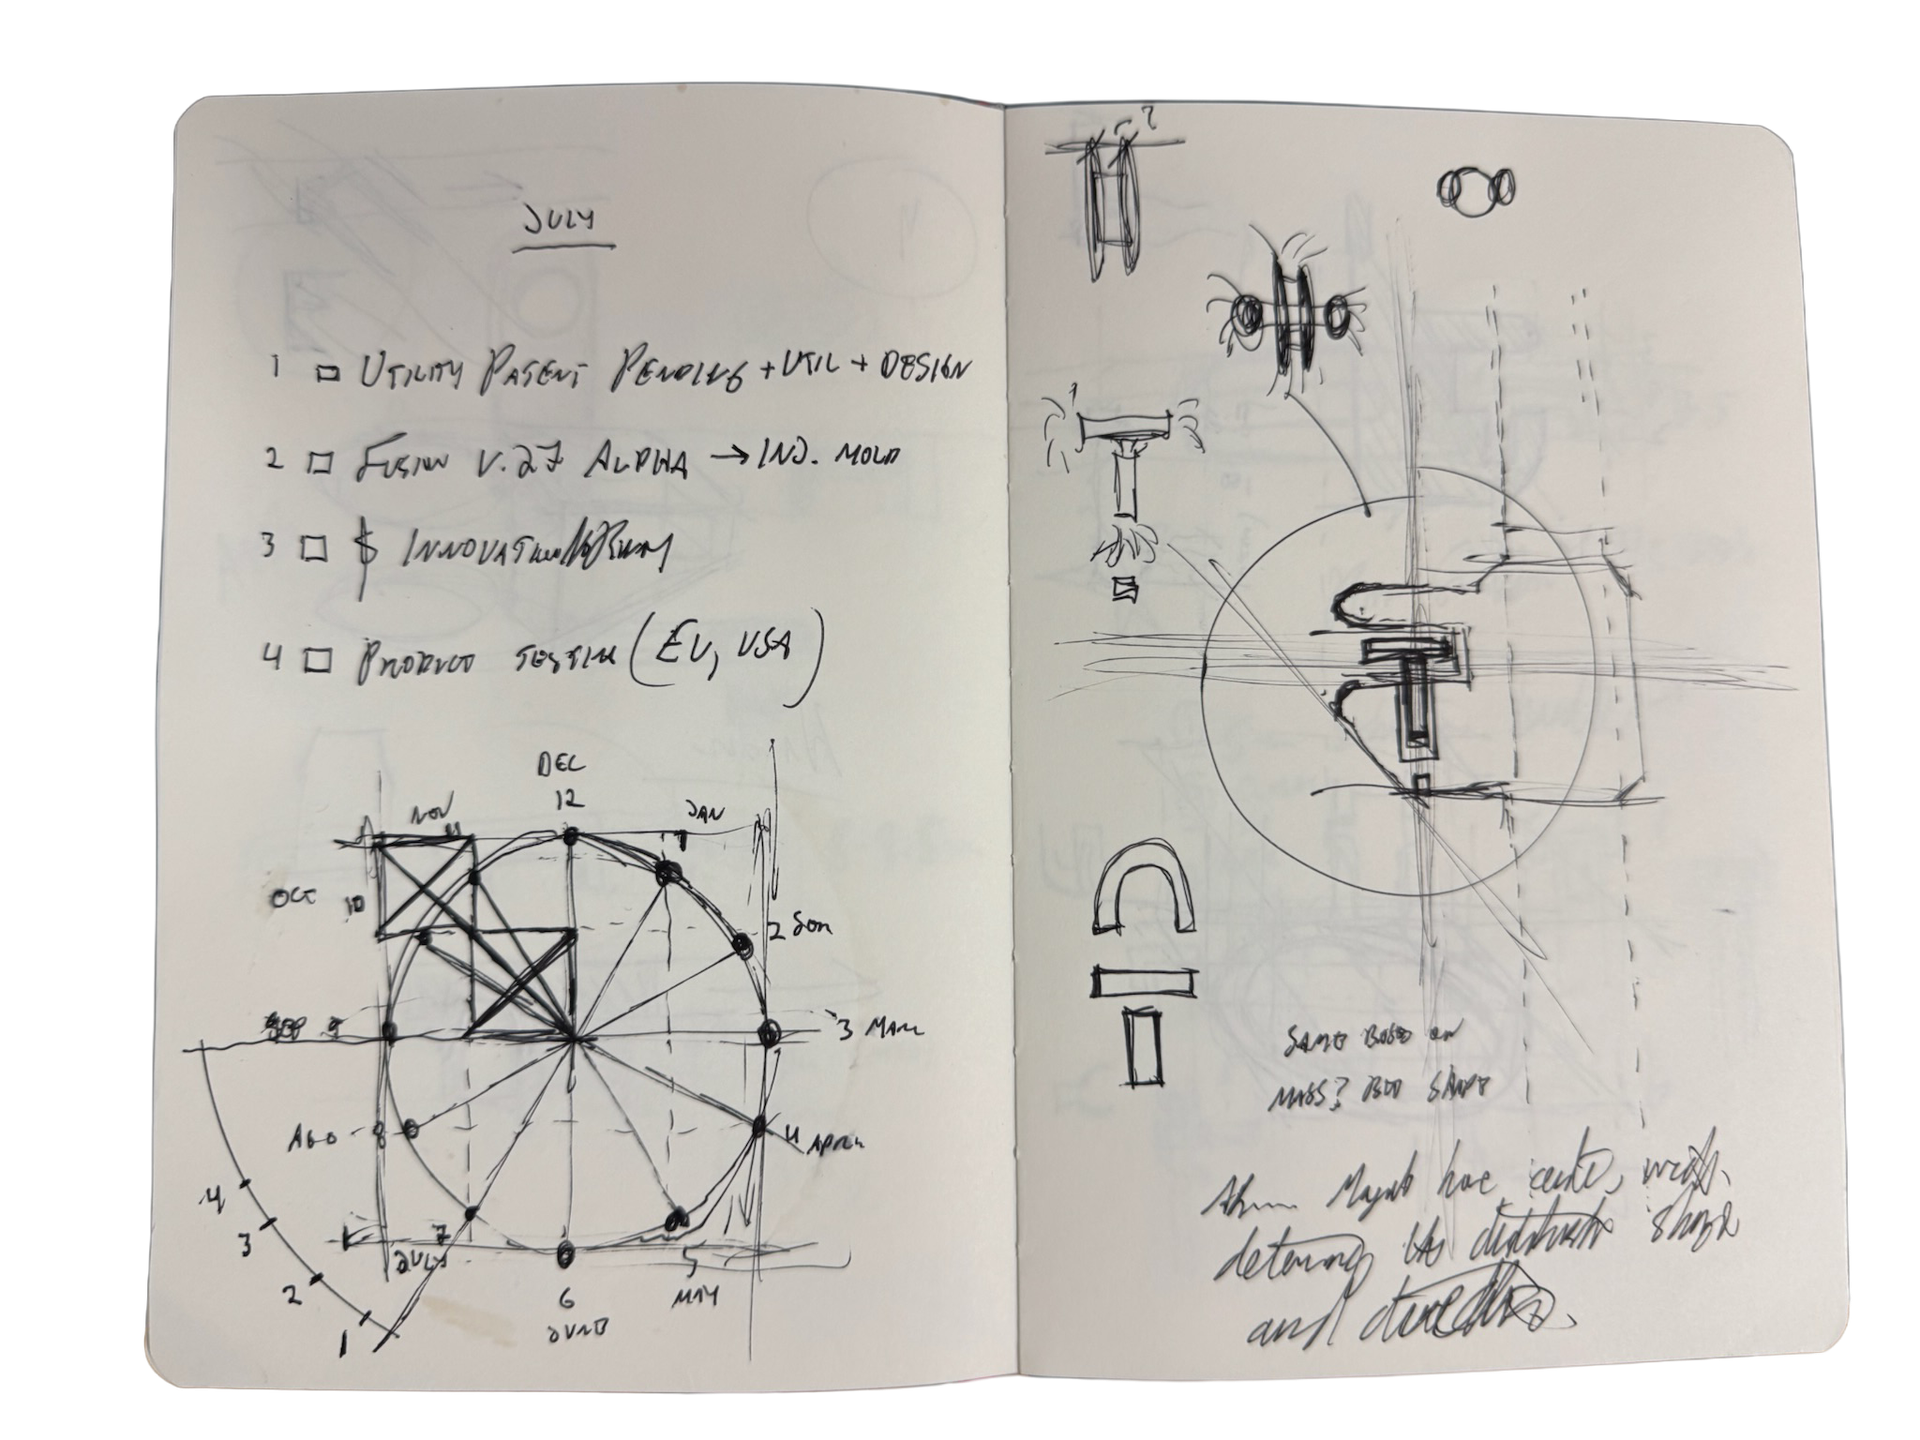 JULY
1 □ UTILITY PATENT PENDING + UTIL + DESIGN
2 □ FUSION V.27 ALPHA → INJ. MOLD
3 □ $ INNOVATION
4 □ PRODUCT TESTING (EU, USA)
DEC
12
NOV
11
JAN
1
OCT 10
2
SEP 9
3 MARC
AGO - 8
4 APRIL
7
JULY
5
MAY
6
JUNE
4
3
2
1
?
?
SAME BASED ON
MASS? BUT SHAPE
have
determing the shape
and